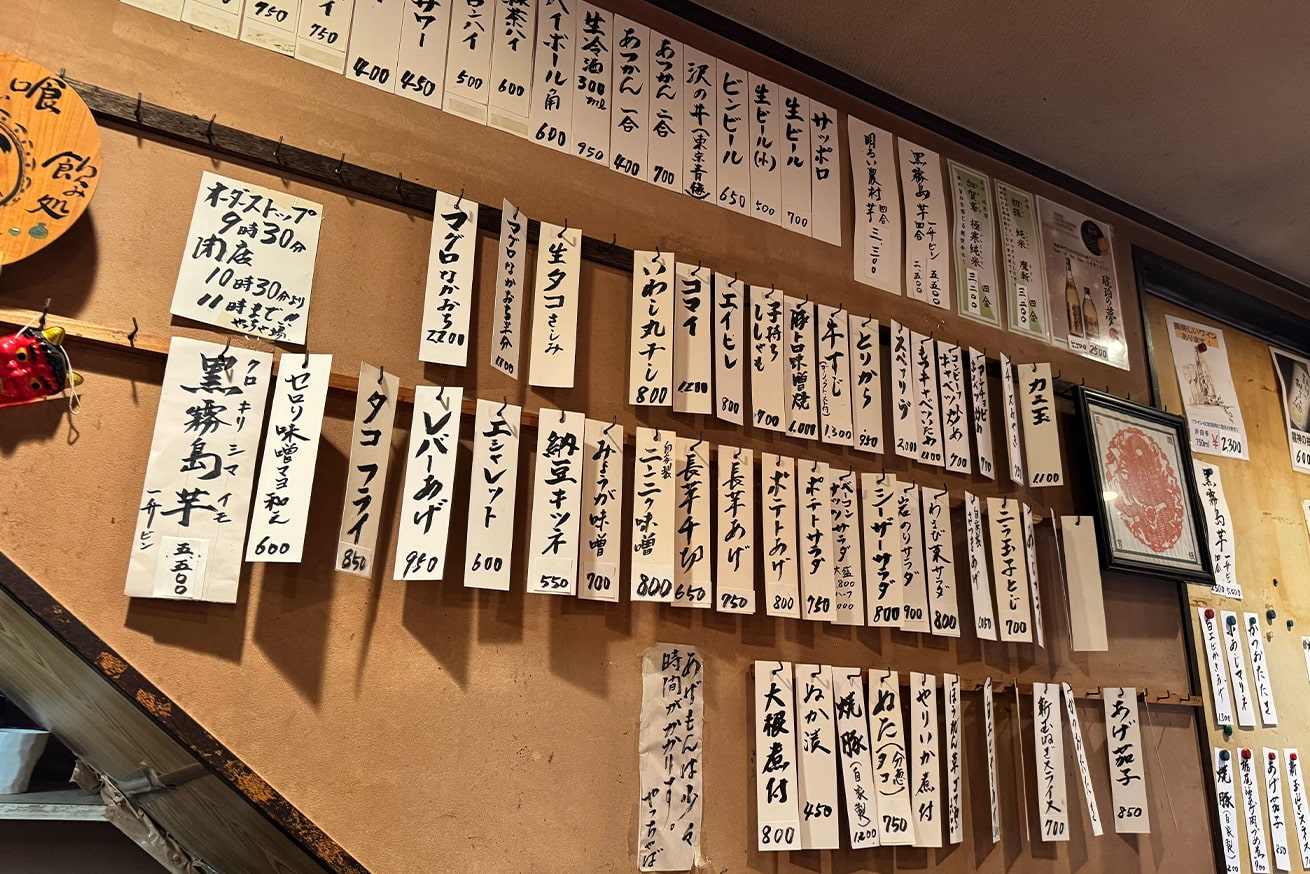 喰
飲み処
750
イ
750
400
サワー
450
500
緑茶ハイ
600
ハイボール角
600
生冷酒
300ml
950
あつかん 一合
400
あつかん 二合
700
沢の井(東京青梅)
ビンビール
650
生ビール(小)
500
生ビール
700
サッポロ
明るい農村 芋
四合
三、三〇〇
黒霧島 芋
一升ビン 五、五〇〇
四合 二、五〇〇
加賀鳶 極寒純米
四合
三、二〇〇
初孫 純米 魔斬
四合
三、二〇〇
琥珀の夢
2500
オーダストップ
9時30分
閉店
10時30分より
11時まで!!
やっちゃば
マグロなかおち
2200
マグロなかおち半分
1100
生タコさしみ
いわし丸干し
800
コマイ
1200
エイヒレ
800
子持ち
ししゃも
700
豚トロ味噌焼
1,000
牛すじ
1,300
とりから
950
スペアリブ
2,000
キャベツ炒め
900
カニ玉
1100
クロ キリ シマ イモ
黒霧島芋
一升ビン
五、五〇〇
セロリ味噌マヨ和え
600
タコフライ
850
レバーあげ
950
エシャレット
600
納豆キツネ
550
みょうが味噌
700
自家製
ニンニク味噌
800
長芋千切
650
長芋あげ
750
ポテトあげ
800
ポテトサラダ
750
ベーコン
ナッツサラダ
大盛 800
ハーフ 600
シーザーサラダ
800
岩のりサラダ
900
わさび菜サラダ
800
自家製
さつまあげ
ニラ玉子とじ
700
あげもんは少々
時間がかかります。
やっちゃば
大根煮付
800
ぬか漬
450
焼豚(自家製)
1200
ぬた(タコ)
(分葱)
750
やりいか煮付
新玉ねぎスライス
700
あげ茄子
850
美味しいワイン
あります
750ml
¥2,300
600
黒霧島 芋
白エビかきあげ
1300
小あじマリネ
かつおたたき
焼豚(自家製)
1200
あげ茄子
850
新玉ねぎスライス